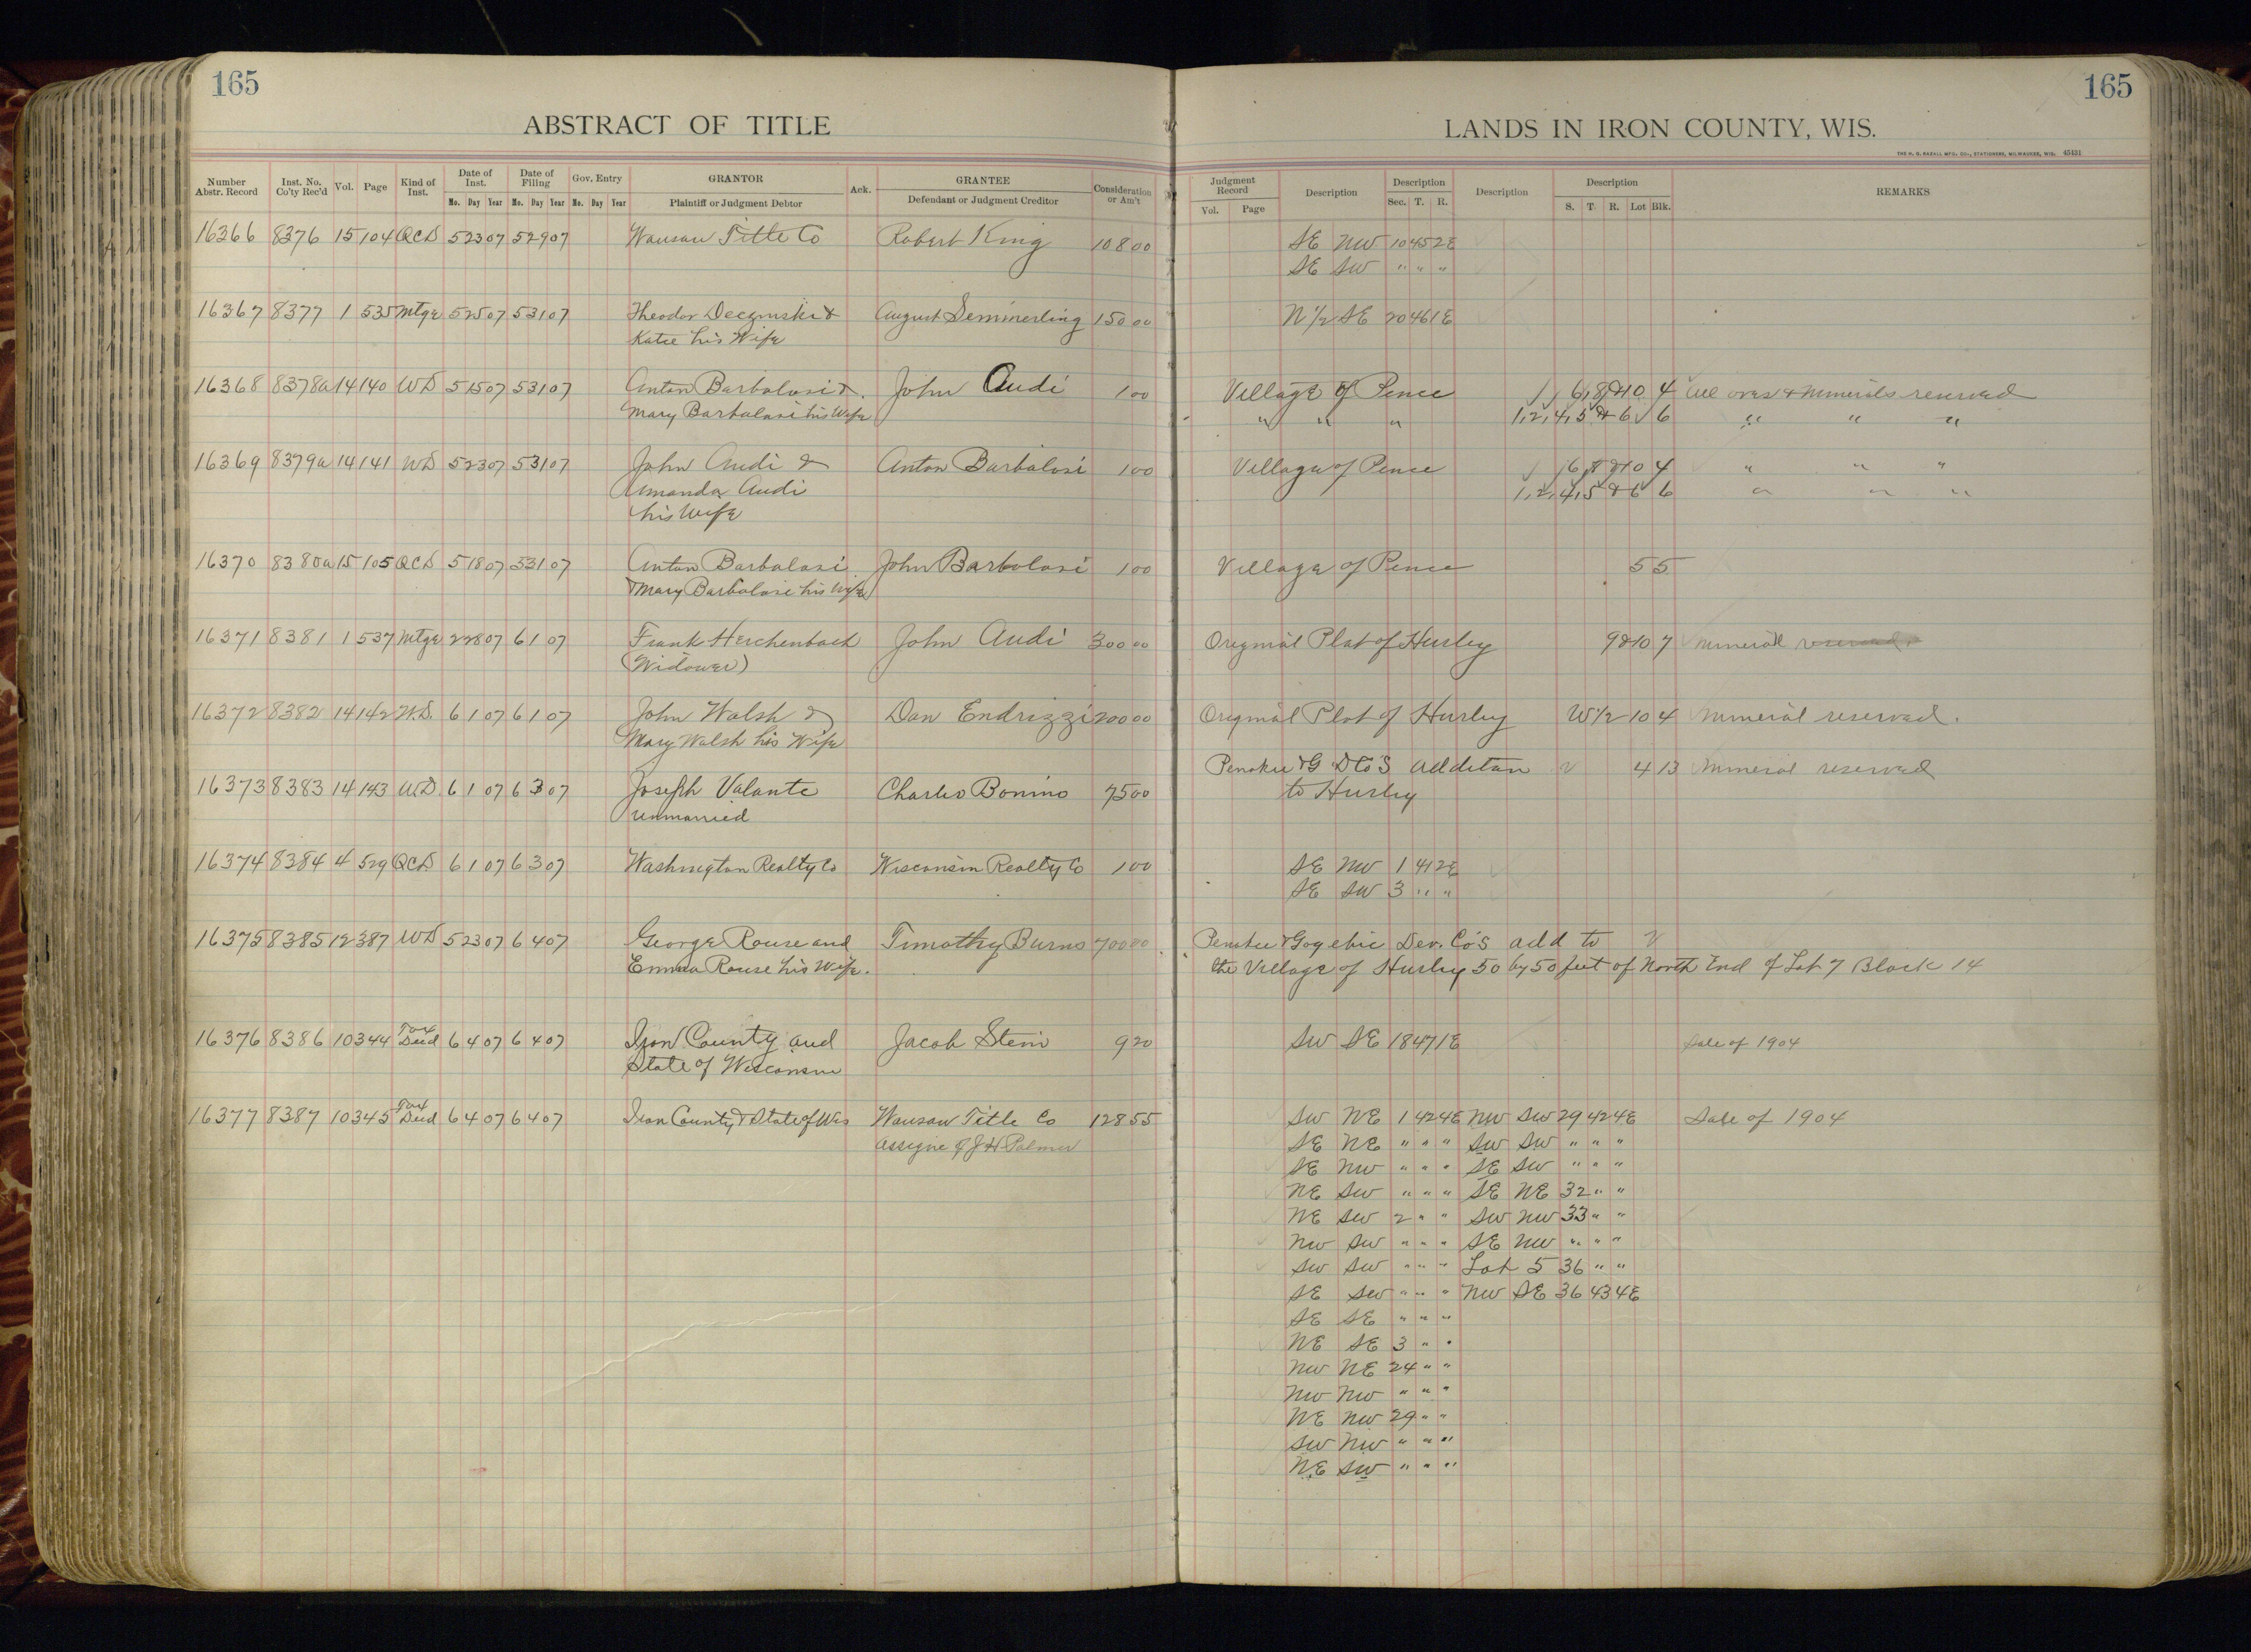 165
165
ABSTRACT OF TITLE
LANDS IN IRON COUNTY, WIS.
THE H. G. RAZALL MFG. CO., STATIONERS, MILWAUKEE, WIS. 45131
Number Abstr. Record Inst. No. Co'ty Rec'd Vol. Page Kind of Inst. Date of Inst. Date of Filing Gov. Entry GRANTOR Ack. GRANTEE Consideration or Am't Judgment Record Description Description Description Description REMARKS
Mo. Day Year Mo. Day Year Mo. Day Year Plaintiff or Judgment Debtor Defendant or Judgment Creditor Vol. Page Sec. T. R. S. T. R. Lot Blk.
16366 8376 15 104 QCD 5 23 07 5 29 07 Wausau Title Co Robert King 108 00 SE NW 10 45 2E
SE SW " " "
16367 8377 1 535 Mtge 5 25 07 5 31 07 Theodor & August Semmerling 150 00 N 1/2 SE 20 46 1E
Katie his Wife
16368 8378a 14 140 WD 5 15 07 5 31 07 Anton Barbalosi & John Audi 1 00 Village of Pence 6, 8 & 10 4 All ores & Minerals reserved
Mary Barbalosi his Wife " " " 1, 2, 4, 5 & 6 6 " " "
16369 8379a 14 141 WD 5 23 07 5 31 07 John Audi & Anton Barbalosi 1 00 Village of Pence 6, 8 & 10 4 " " "
Amanda Audi 1, 2, 4, 5 & 6 6 " " "
his Wife
16370 8380a 15 105 QCD 5 18 07 5 31 07 Anton Barbalosi John Barbolosi 1 00 Village of Pence 5 5
& Mary Barbalosi his Wife
16371 8381 1 537 Mtge 2 28 07 6 1 07 Frank Herchenbach John Audi 300 00 Original Plat of Hurley 9 & 10 7 Mineral reserved
(Widower)
16372 8382 14 142 W.D. 6 1 07 6 1 07 John Walsh & Dan Endrizzi 200 00 Original Plat of Hurley W 1/2 10 4 Mineral reserved.
Mary Walsh his Wife
16373 8383 14 143 W.D. 6 1 07 6 3 07 Joseph Valante Charles Bonino 75 00 Penokee & G D Co's Addition 4 13 Mineral reserved
unmarried to Hurley
16374 8384 4 529 QCD 6 1 07 6 3 07 Washington Realty Co Wisconsin Realty Co 1 00 SE NW 1 41 2E
SE SW 3 " "
16375 8385 12 387 WD 5 23 07 6 4 07 George Rouse and Timothy Burns 700 00 Penokee & Gogebic Dev. Co's add to
Emma Rouse his Wife. the Village of Hurley 50 by 50 feet of North End of Lot 7 Block 14
16376 8386 10 344 Tax Deed 6 4 07 6 4 07 Iron County and Jacob Stein 9 20 SW SE 18 47 1E Sale of 1904
State of Wisconsin
16377 8387 10 345 Tax Deed 6 4 07 6 4 07 Iron County & State of Wis Wausau Title Co 128 55 SW NE 1 42 4E NW SW 29 42 4E Sale of 1904
Assigne of J H Palmer SE NE " " " SW SW " " "
SE NW " " " SE SW " " "
NE SW " " " SE NE 32 " "
NE SW 2 " " SW NW 33 " "
NW SW " " " SE NW " " "
SW SW " " " Lot 5 36 " "
SE SW " " " NW SE 36 43 4E
SE SE " " "
NE SE 3 " "
NW NE 24 " "
NW NW " " "
NE NW 29 " "
SW NW " " "
NE SW " " "